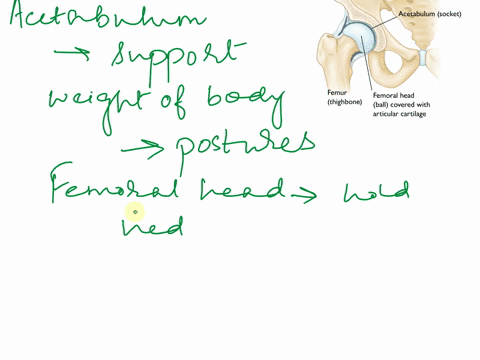 Acetabulum
→ support
weight of body
→ postures
Femoral head → hold
hed
Acetabulum (socket)
Femur
(thighbone)
Femoral head
(ball) covered with
articular cartilage